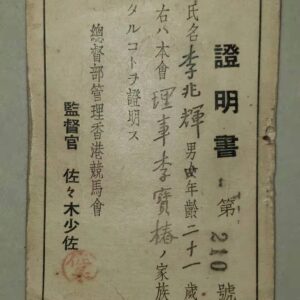 證明書 第210號
氏名 李兆輝 男女年齡二十一歲
右ハ本會理事李寶椿ノ家族
タルコトヲ證明ス
總督部管理香港競馬會
監督官 佐々木少佐